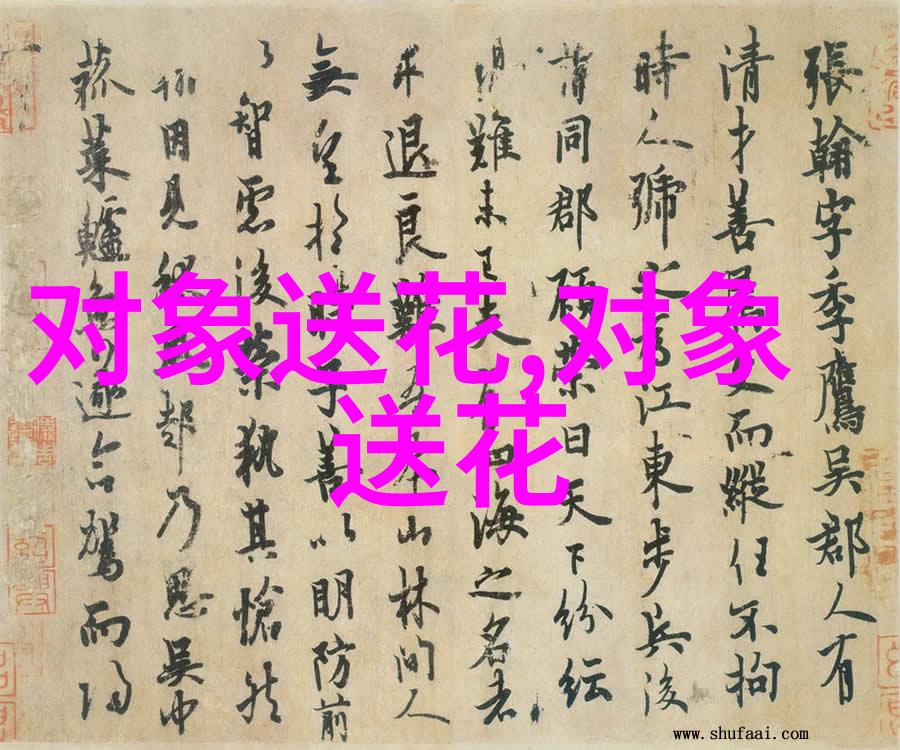 張翰字季鷹吳郡人有
清才善文而縱任不拘
時人號為江東步兵後
同郡顧榮曰天下紛紜
難未已夫四海之名者
求退良難本山林間人
無望於時子善以明防前
以智慮後榮執其愴然
因見秋起乃思吳中
菰菜鱸魚遂命駕而歸
对象送花,对象
送花
www.shufaai.com